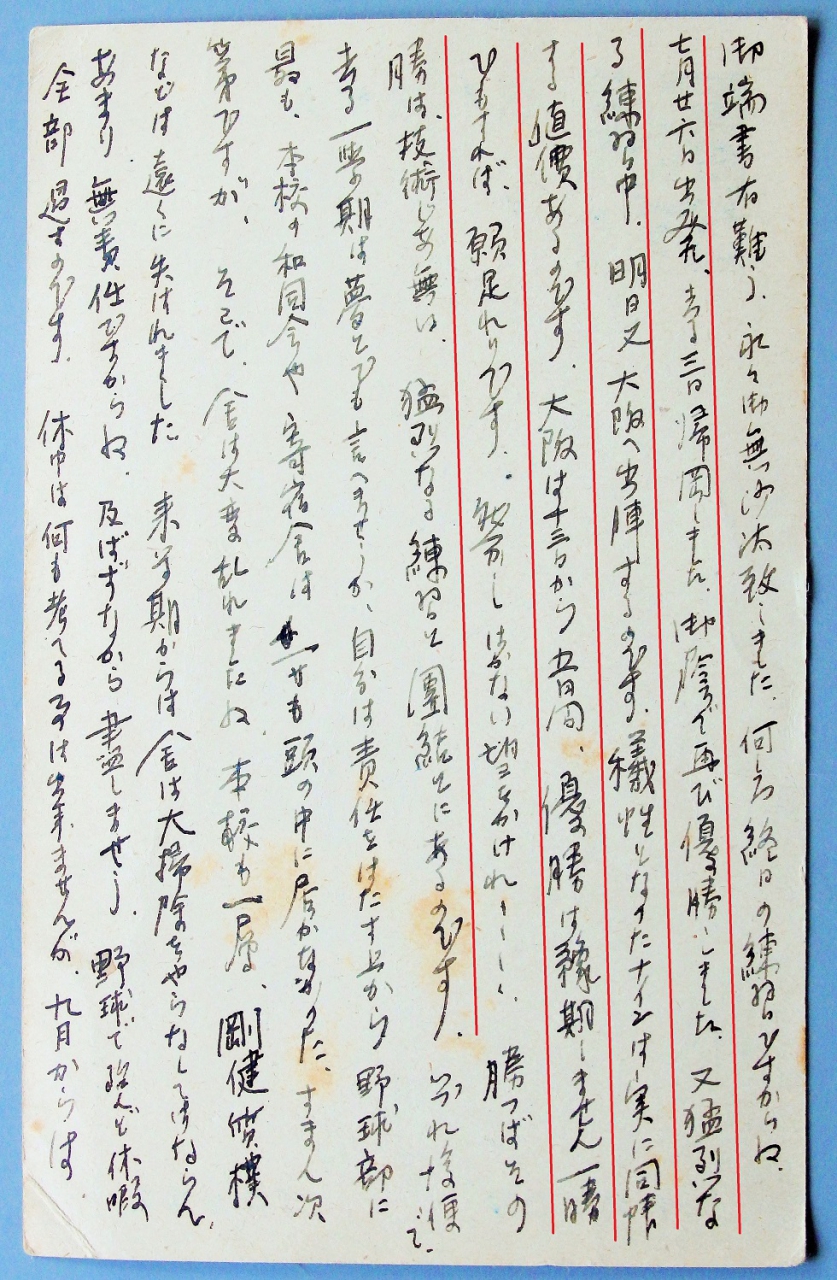 御端書有難う、永々御無沙汰致しました、何しろ終日の練習ですからね、
七月廿六日出発、去る三日帰岡しました、御陰で再び優勝しました、又猛烈な
る練習中、明日又大阪へ出陣するのです、犠牲となったナインは実に同情
する値價あるのです、大阪は十三日から五日間、優勝は豫期しません 一勝
ひもすれば、願足れりです、然しはかない望をかけれ―――、勝つばその
勝は、技術の有無は、猛烈なる練習と團結とにあるのです、いづれ後便で、
去る一學期は夢とでも言へませうか、自分は責任をはたす上から野球部に
最も、本校の和同会や寄宿舎は 一せも頭の中に居かなかった、すまん次
第ですが、そこで、舎は大変乱れましたね、本校も一層、剛健質樸
などは遠くに失はれました 来学期からは舎は大掃除をやらなくてはならん、
あまり無責任ですからね、及ばずながら しませう、野球で殆んど休暇
全部過すのです、休中は何も考へる事は出来ませんが、九月からは、